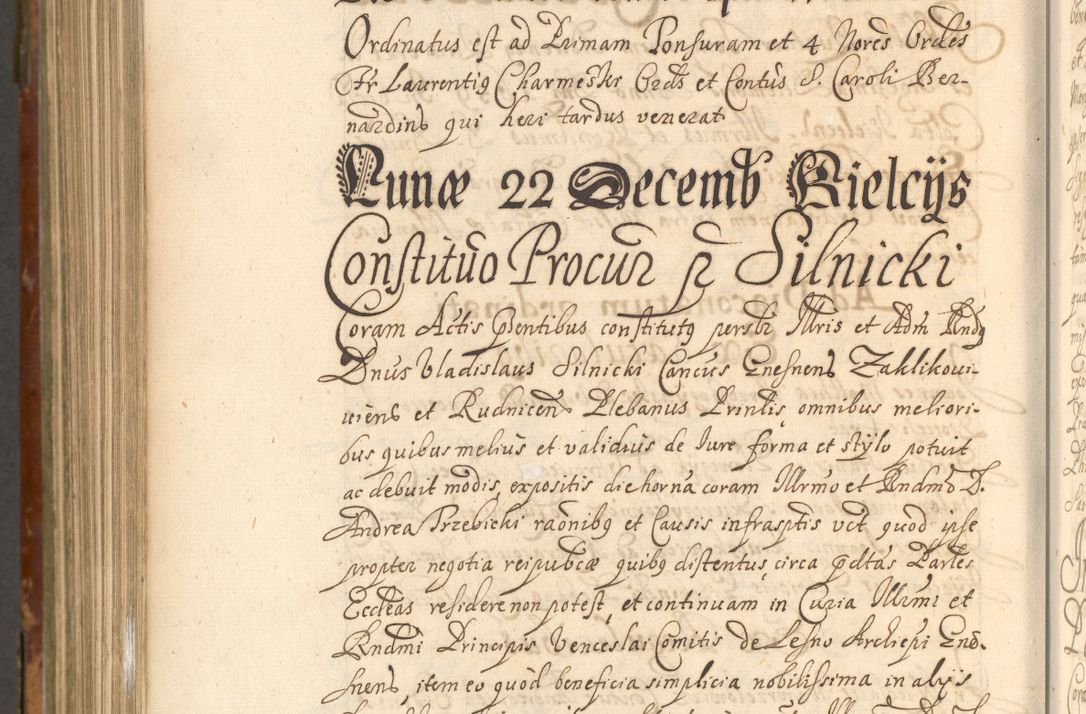 Ordinatus est ad Primam Tonsuram et 4 Nores Ordes
Fr Laurentiq Charmeski Ords et Contus S. Caroli Ber-
nardins qui heri tardus venerat
Lunæ 22 Decemb Kielcijs
Constitûo Procur p Silnicki
Coram Actis pentibus constitutq persbr Illris et Adm Rndq
Dnûs Vladislaus Silnicki Cancûs Gnesnens Zaklikoui-
uiens et Rudnicens Plebanus Printis omnibus meliori-
bus quibus meliûs et validiûs de Iure forma et stylo potuit
ac debuit modis, expositis die horna coram Illrmo et Rndmo D.
Andrea Trzebicki raonibq et Causis infrasptis vct quod ipse
propter negotia reipubcæ quibq distentus, circa pdtas Partes
Eccleas residere non potest, et continuam in Curia Illrmi et
Rndmi Principis Venceslai Comitis de Lesno Archiepi Gne-
snens, item eo quòd beneficia simplicia nobilissima in alijs